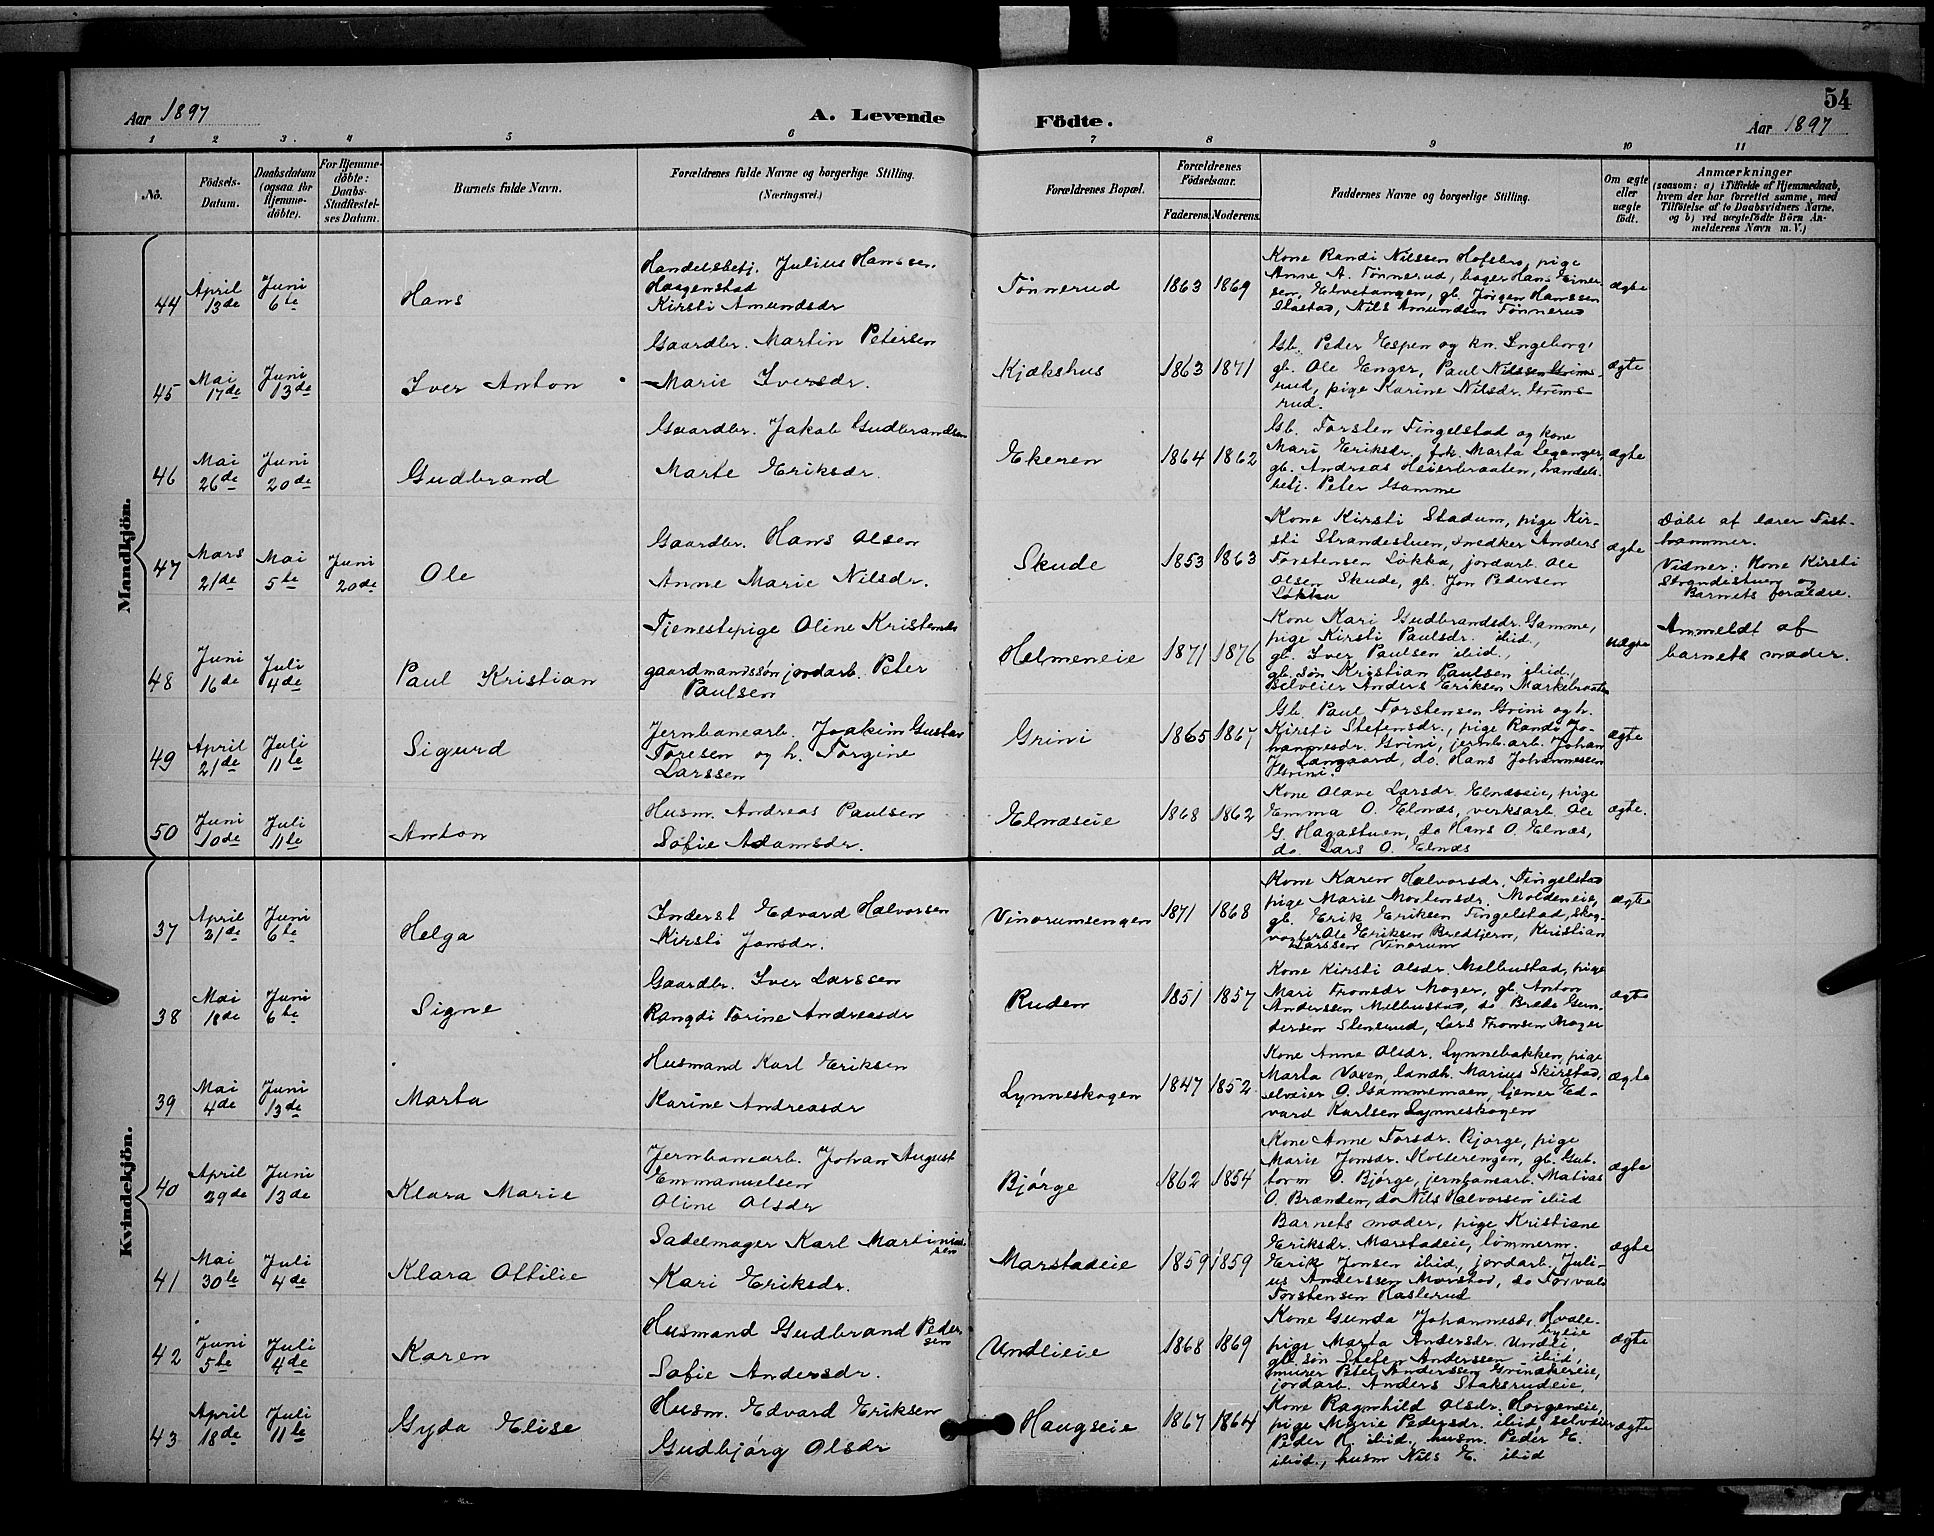 54
Aar 1897
A. Levende Födte.
Aar 1897
1 2 3. 4 5 6 7 8 9 10 11
No.
Födsels-Datum.
Daabsdatum (ogsaa for Hjemme-döbte).
For Hjemme-döbte: Daabs-Stadfæstel-ses Datum.
Barnets fulde Navn.
Forældrenes fulde Navne og borgerlige Stilling.
(Næringsvei.)
Forældrenes Bopæl.
Forældrenes Födselsaar.
Faderens. Moderens.
Faddernes Navne og borgerlige Stilling.
Om ægte eller uægte födt.
Anmærkninger
(saasom: a) i Tilfælde af Hjemmedaab,
hvem der har forrettet samme, med
Tilföielse af to Daabsvidners Navne,
og b) ved uægtefödte Börn An-
melderens Navn m. V.)
Mandkjön.
44 April 13de Juni 6te Hans
Handelsbetj. Julius Hanssen
Haagenstad
Kirsti Amundsdr
Tönnerud 1863 1869
Kone Randi Nilssen Hofsbro, pige
Anne A. Tönnerud, bager Hans Einer-
sen, Elvetangen, gb. Jörgen Hanssen
Slastad, Nils Amundsen Tönnerud
ægte
45 Mai 17de Juni 13de Iver Anton
Gaardbr. Martin Petersen
Marie Iversdr.
Kjækshus 1863 1871
Gb. Peder Espen og kn. Ingeborg,
gb. Ole Enger, Paul Nilssen Grims-
rud, pige Karine Nilsdr. Grims-
rud.
ægte
46 Mai 26de Juni 20de Gudbrand
Gaardbr. Jakob Gudbrandsen
Marte Eriksdr.
Ekeren 1864 1862
Gb. Torsten Tingelstad og kone
Mari Eriksdr. frk. Marta Leganger,
gb. Andreas Heierbraaten, handels-
betj. Peter Gamme
ægte
47 Mars 21de Mai 5te Juni 20de Ole
Gaardbr. Hans Olsen
Anne Marie Nilsdr.
Skude 1853 1863
Kone Kirsti Stadum, pige Kir-
sti Strandestuen, snedker Anders
Torstensen Løkka, jordarb. Ole
Olsen Skude, gb. Jon Pedersen
Løkka
ægte
Döbt af lærer Fist-
hammer.
Vidner: Kone Kirsti
Strandestuen og
Barnets forældre.
48 Juni 16de Juli 4de Paul Kristian
Tjenestepige Oline Kristensdr
gaardmandssøn jordarb. Peter
Paulsen
Helmeneie 1871 1876
Kone Kari Gudbrandsdr. Gamme,
pige Kirsti Paulsdr. ibid,
gb. Iver Paulsen ibid.,
gb. søn Kristian Paulsen ibid.,
Selveier Anders Eriksen Markebraaten
uægte
Anmeldt af
barnets moder.
49 April 21de Juli 11te Sigurd
Jernbanearb. Joakim Gustav
Toresen og h. Torgine
Larssen
Grini 1865 1867
Gb. Paul Torstensen Grini og h.
Kirsti Stefensdr., pige Randi Jo-
hannesdr. Grini, jernb.arb. Johan
J. Langaard, do. Hans Johannessen
Grini.
ægte
50 Juni 10de Juli 11te Anton
Husm. Andreas Paulsen
Sofie Adamsdr.
Elnæseie 1868 1862
Kone Olave Larsdr. Elnæseie, pige
Emma O. Elnæs, verksarb. Ole
G. Hagastuen, do Hans O. Elnæs,
do. Lars O. Elnæs
ægte.
Kvindekjön.
37 April 21de Juni 6te Helga
Inderst Edvard Halvorsen
Kirsti Jonsdr.
Vinorumsengen 1871 1868
Kone Karen Halvorsdr. Tingelstad
pige Marie Mortensdr. Moldeneie,
gb. Erik Eriksen Tingelstad, skog-
vogter Ole Eriksen Bredtjern, Kristian
Larssen Vinorum
ægte
38 Mai 18de Juni 6te Signe
Gaardbr. Iver Larssen
Rangdi Torine Andreasdr
Ruden 1851 1857
Kone Kirsti Olsdr. Melbustad, pige
Mari Tronsdr Moger, gb. Anton
Anderssen Melbustad, do Brede Gun-
dersen Stensrud, Lars Tronsen Moger
ægte
39 Mai 4de Juni 13de Marta
Husmand Karl Eriksen
Karine Andreasdr
Lynneskogen 1847 1852.
Kone Anne Olsdr. Lynnebakken, pige
Marta Voxen, landh. Marius Skirstad,
selveier O. Gammemoen, tjener Ed-
vard Karlsen Lynneskogen
ægte
40 April 29de Juni 13de Klara Marie
Jernbanearb. Johan August
Emmanuelsen
Oline Olsdr
Bjørge 1862 1854
Kone Anne Torsdr. Bjørge, pige
Marie Jonsdr. Kolterengen, gb. Gut-
torm O. Bjørge, jernbanearb. Matias
O. Brænden, do Nils Halvorsen ibid
ægte
41 Mai 30te Juli 4de Klara Ottilie
Sadelmager Karl Martinius-
sen
Kari Eriksdr.
Marstadeie 1859 1859
Barnets moder, pige Kristiane
Eriksdr. Marstadeie, tømmerm.
Erik Jonsen ibid, jordarb. Juli-
us Anderssen Morstad, do Torvald
Torstensen Haslerud
ægte
42 Juni 5te Juli 4de Karen
Husmand Gudbrand Peder-
sen
Sofie Andersdr.
Undlieie 1868 1869
Kone Gunda Johannesdr. Hvale-
byeie
pige Marta Andersdr. Undli,
gb. søn Stefen Anderssen ibid,
murer Peter Anderssen Grinakereie,
jordarb. Anders Staksrudeie,
ægte
43 April 18de Juli 11te Gyda Elise
Husm. Edvard Eriksen
Gudbjørg Olsdr
Haugseie 1867 1864
Kone Ragnhild Olsdr. Horgeneie,
pige Marie Pedersdr. ibid, selveier
Peder H. ibid., husm. Peder E.
ibid., husm Nils E. ibid
ægte